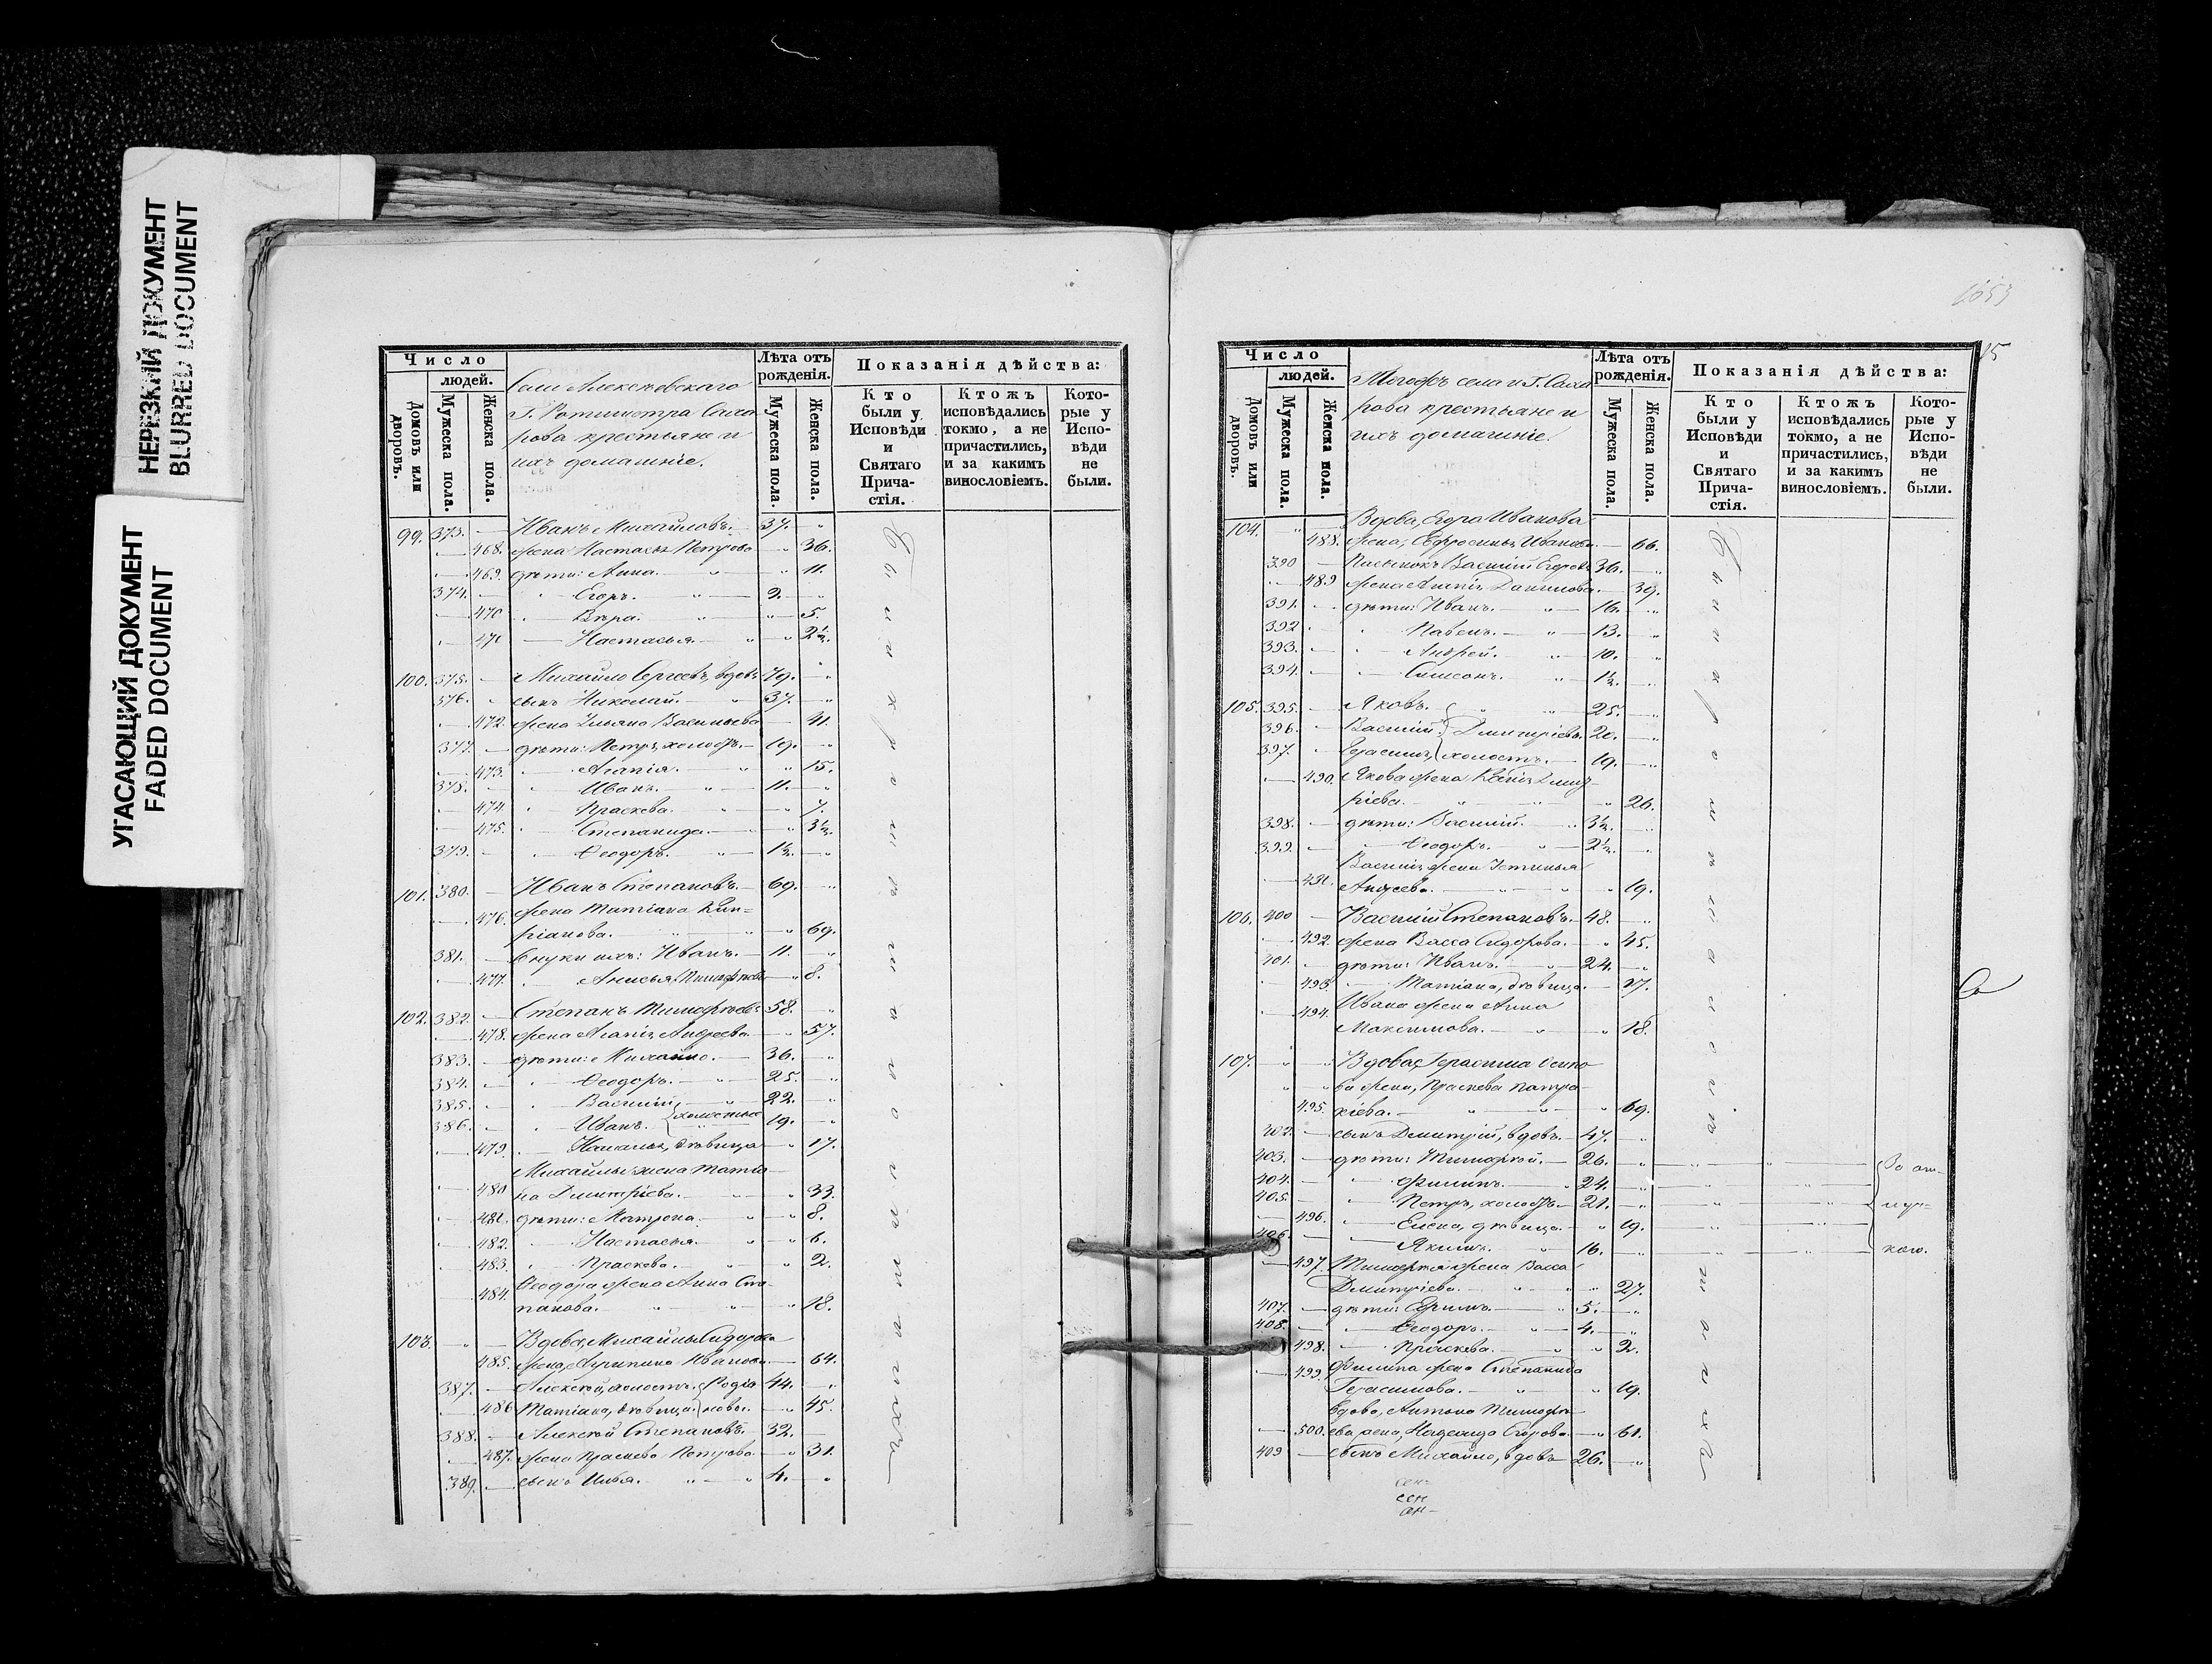 НЕРЕЗКИЙ ДОКУМЕНТ
BLURRED DOCUMENT
УГАСАЮЩИЙ ДОКУМЕНТ
FADED DOCUMENT
Число
людей.
Домовъ или дворовъ.
Мужеска пола.
Женска пола.
Села Алексѣевскаго
Г. Ротмистра Саха
рова крестьяне и
ихъ домашніе.
Лѣта отъ рожденія.
Мужеска пола.
Женска пола.
Показанія дѣйства:
Кто были у Исповѣди и Святаго Прича-стія.
Ктожъ исповѣдались токмо, а не причастились, и за какимъ винословіемъ.
Кото-рые у Испо-вѣди не были.
99. 373. — Иванъ Михайловъ. — 37. "
468. жена Настасья Петрова — " 36.
469. дѣти: Анна. " — " 11.
374. — " Егоръ. " — 2. — "
470 " — Вѣра. " — " 5.
471 — Настасья. — " " 2½.
100. 375. — Михайло Сергѣевъ, вдовъ 79. "
376. " сынъ Николай. — " 37. "
472. жена Ульяна Васильева — 41.
377. — дѣти: Петръ, холостъ. — 19. "
473. " Агапія. " " 15.
378. — " Иванъ. " — 11. — "
474. " Праскева. " — " 7.
475. " Степанида. — " 3½.
379. — " Ѳеодоръ. " — 1½. "
101. 380. — Иванъ Степановъ. — 69. "
476. жена Татіана Кип=
ріанова. " " " 69.
381. — Внуки ихъ: Иванъ. — 11. "
477. " Анисья Тимоѳѣевы — " 8.
102. 382. — Степанъ Тимоѳѣевъ 58. "
478. жена Агапія Андреева — " 57.
383. — дѣти: Михайло. — 36. "
384. — " Ѳеодоръ. — " 25. "
385. — " Василій " 22. "
386. — " Иванъ. холостые 19. "
479. — Наталья, дѣвица — " 17.
Михайлы жена Татіа—
480 на Дмитріева. — " " 33.
481. дѣти: Матрона. " " 8.
482. — Настасья. " " 6.
483. " Праскева. " " 2.
Ѳеодора жена Анна Сте
484. панова. " " " 18.
103. " — Вдова, Михайлы Сидорова
485. жена, Агрипина Иванова — 64.
387. — Алексѣй, холостъ. Родіо 44. "
486 Татіана, дѣвица. новы. — " 45.
388. — Алексѣй Степановъ. 32. —
487. жена Праскева Петрова — " 31.
389. — сынъ Илья. " " 4. — "
1653
15
Число
людей.
Домовъ или дворовъ.
Мужеска пола.
Женска пола.
Тогожъ села и Г. Саха
рова крестьяне и
ихъ домашніе.
Лѣта отъ рожденія.
Мужеска пола.
Женска пола.
Показанія дѣйства:
Кто были у Исповѣди и Святаго Прича-стія.
Ктожъ исповѣдались токмо, а не причастились, и за какимъ винословіемъ.
Кото-рые у Испо-вѣди не были.
104. " Вдова, Егора Иванова
488. жена, Ефросинья Иванова — 66.
390 — Пасынокъ Василій Егоровъ 36. — "
489 жена Агапія Данилова. — 39.
391. — дѣти: Иванъ. — " — 16. "
392 " Павелъ. — " — 13. "
393. — " Андрей. " — 10. "
394. — " Симеонъ. " 1½. "
105. 395. — Яковъ. " " 25. — "
396. — Василій Дмитріевы 20. "
397. " Герасимъ, холостъ. — 19. — "
490. Якова жена Ксенія Дмит—
ріева. — " " " 26.
398. — дѣти: Василій. — " 3½. "
399. — " Ѳеодоръ. — " 2½. "
Василія жена Устинья
491. Андреева. — " " " 19.
106. 400 — Василій Степановъ. — 48. "
492. жена Васса Сидорова. — " 45.
401. — дѣти: Иванъ. — " — 24. — "
493. — Татіана, дѣвица. — 27.
Ивана жена Анна
494. Максимова. — " " 18.
107. " " Вдова, Герасима Осипо
" " ва жена, Праскева Патри—
495. кіева. — " " " 69.
402. — сынъ Дмитрій, вдовъ. — 47. "
403. — дѣти: Тимоѳей. — 26. " За от—
404. — " Филиппъ. — " 24. "
405. — " Петръ, холостъ. — 21. — " луч=
496. " Елена, дѣвица. — " 19.
406. — " Якимъ. " 16. " кою.
497. Тимоѳея жена Васса
Дмитріева. — " " " 27.
407. — дѣти: Ефимъ. — " — 5. "
408. — " Ѳеодоръ. — " — 4. "
498. — " Праскева. — " " 2.
499. Филиппа жена Степанида
Герасимова. — " " 19.
Вдова, Антона Тимоѳѣ—
500. ева жена, Надежда Егорова. — " 61.
409 — сынъ Михайло, вдовъ — 26. "